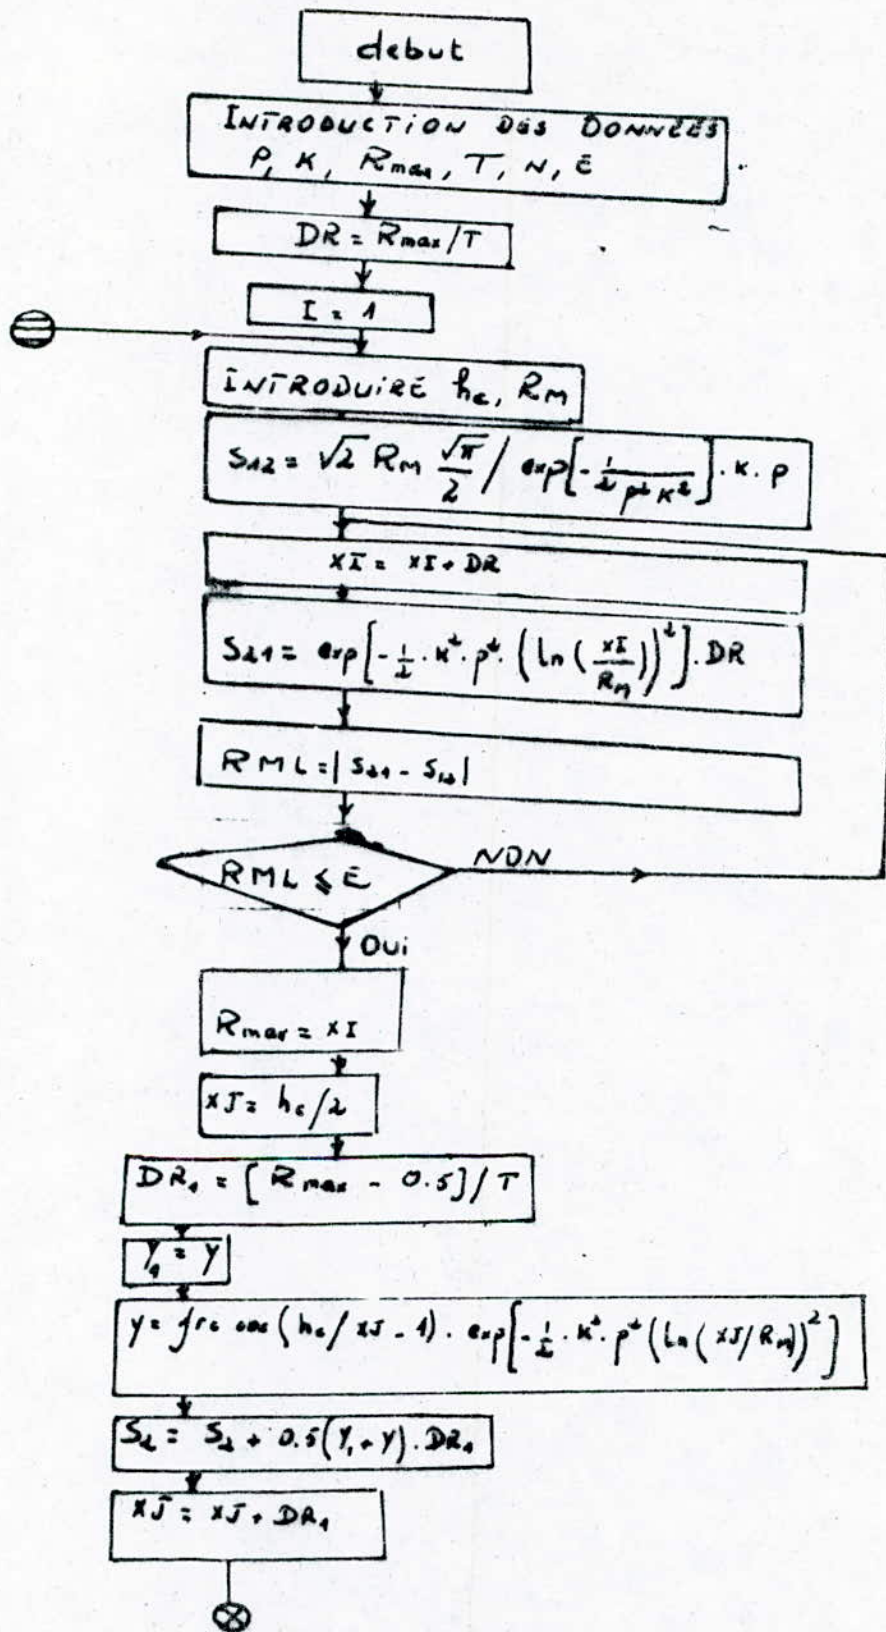 debut
INTRODUCTION DES DONNÉES
P, K, Rmax, T, N, E
DR = Rmax/T
I = 1
INTRODUIRE hc, RM
S12 = √2 RM √π/2 / exp[-1/2 1/P² K²] . K . P
XI = XI + DR
S21 = exp[-1/2 . K² . P² . (ln(XI/RM))²] . DR
RML = |S21 - S12|
RML ⩽ E
NON
Oui
Rmax = XI
XJ = hc/2
DR1 = [Rmax - 0.5]/T
Y1 = Y
Y = Arc cos(hc/XJ - 1) . exp[-1/2 . K² . P² (Ln(XJ/RM))²]
S2 = S2 + 0.5(Y1 + Y) . DR1
XJ = XJ + DR1